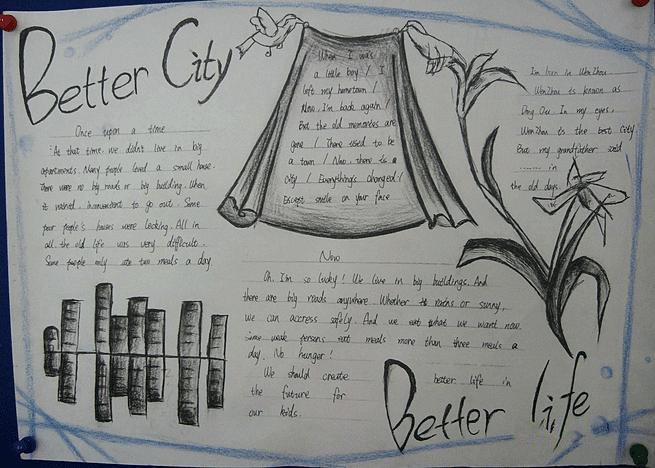 Better City
Once upon a time
As that time, we didn't live in big
apartments. Many people loved a small house.
There were no big roads or big building. When
it rained, inconvenient to go out. Some
poor people's houses were leaking. All in
all, the old life was very difficult.
Some people only ate two meals a day
When I was
a little boy / I
left my hometown /
Now, I'm back again /
But the old memories are
gone / There used to be
a town / Now there is a
city / Everything's changed /
Except smile on your face
I'm born in WenZhou
WenZhou is known as
Dong Ou. In my eyes,
WenZhou is the best city.
But my grandfather said
in
the old days.
Now
Oh, I'm so lucky! We live in big buildings. And
there are big roads anywhere. Whether rains or sunny,
we can access safely. And we eat what we want now.
Some persons eat meals more than three meals a
day. No hunger!
We should create better life in
the future for
our kids.
Better life